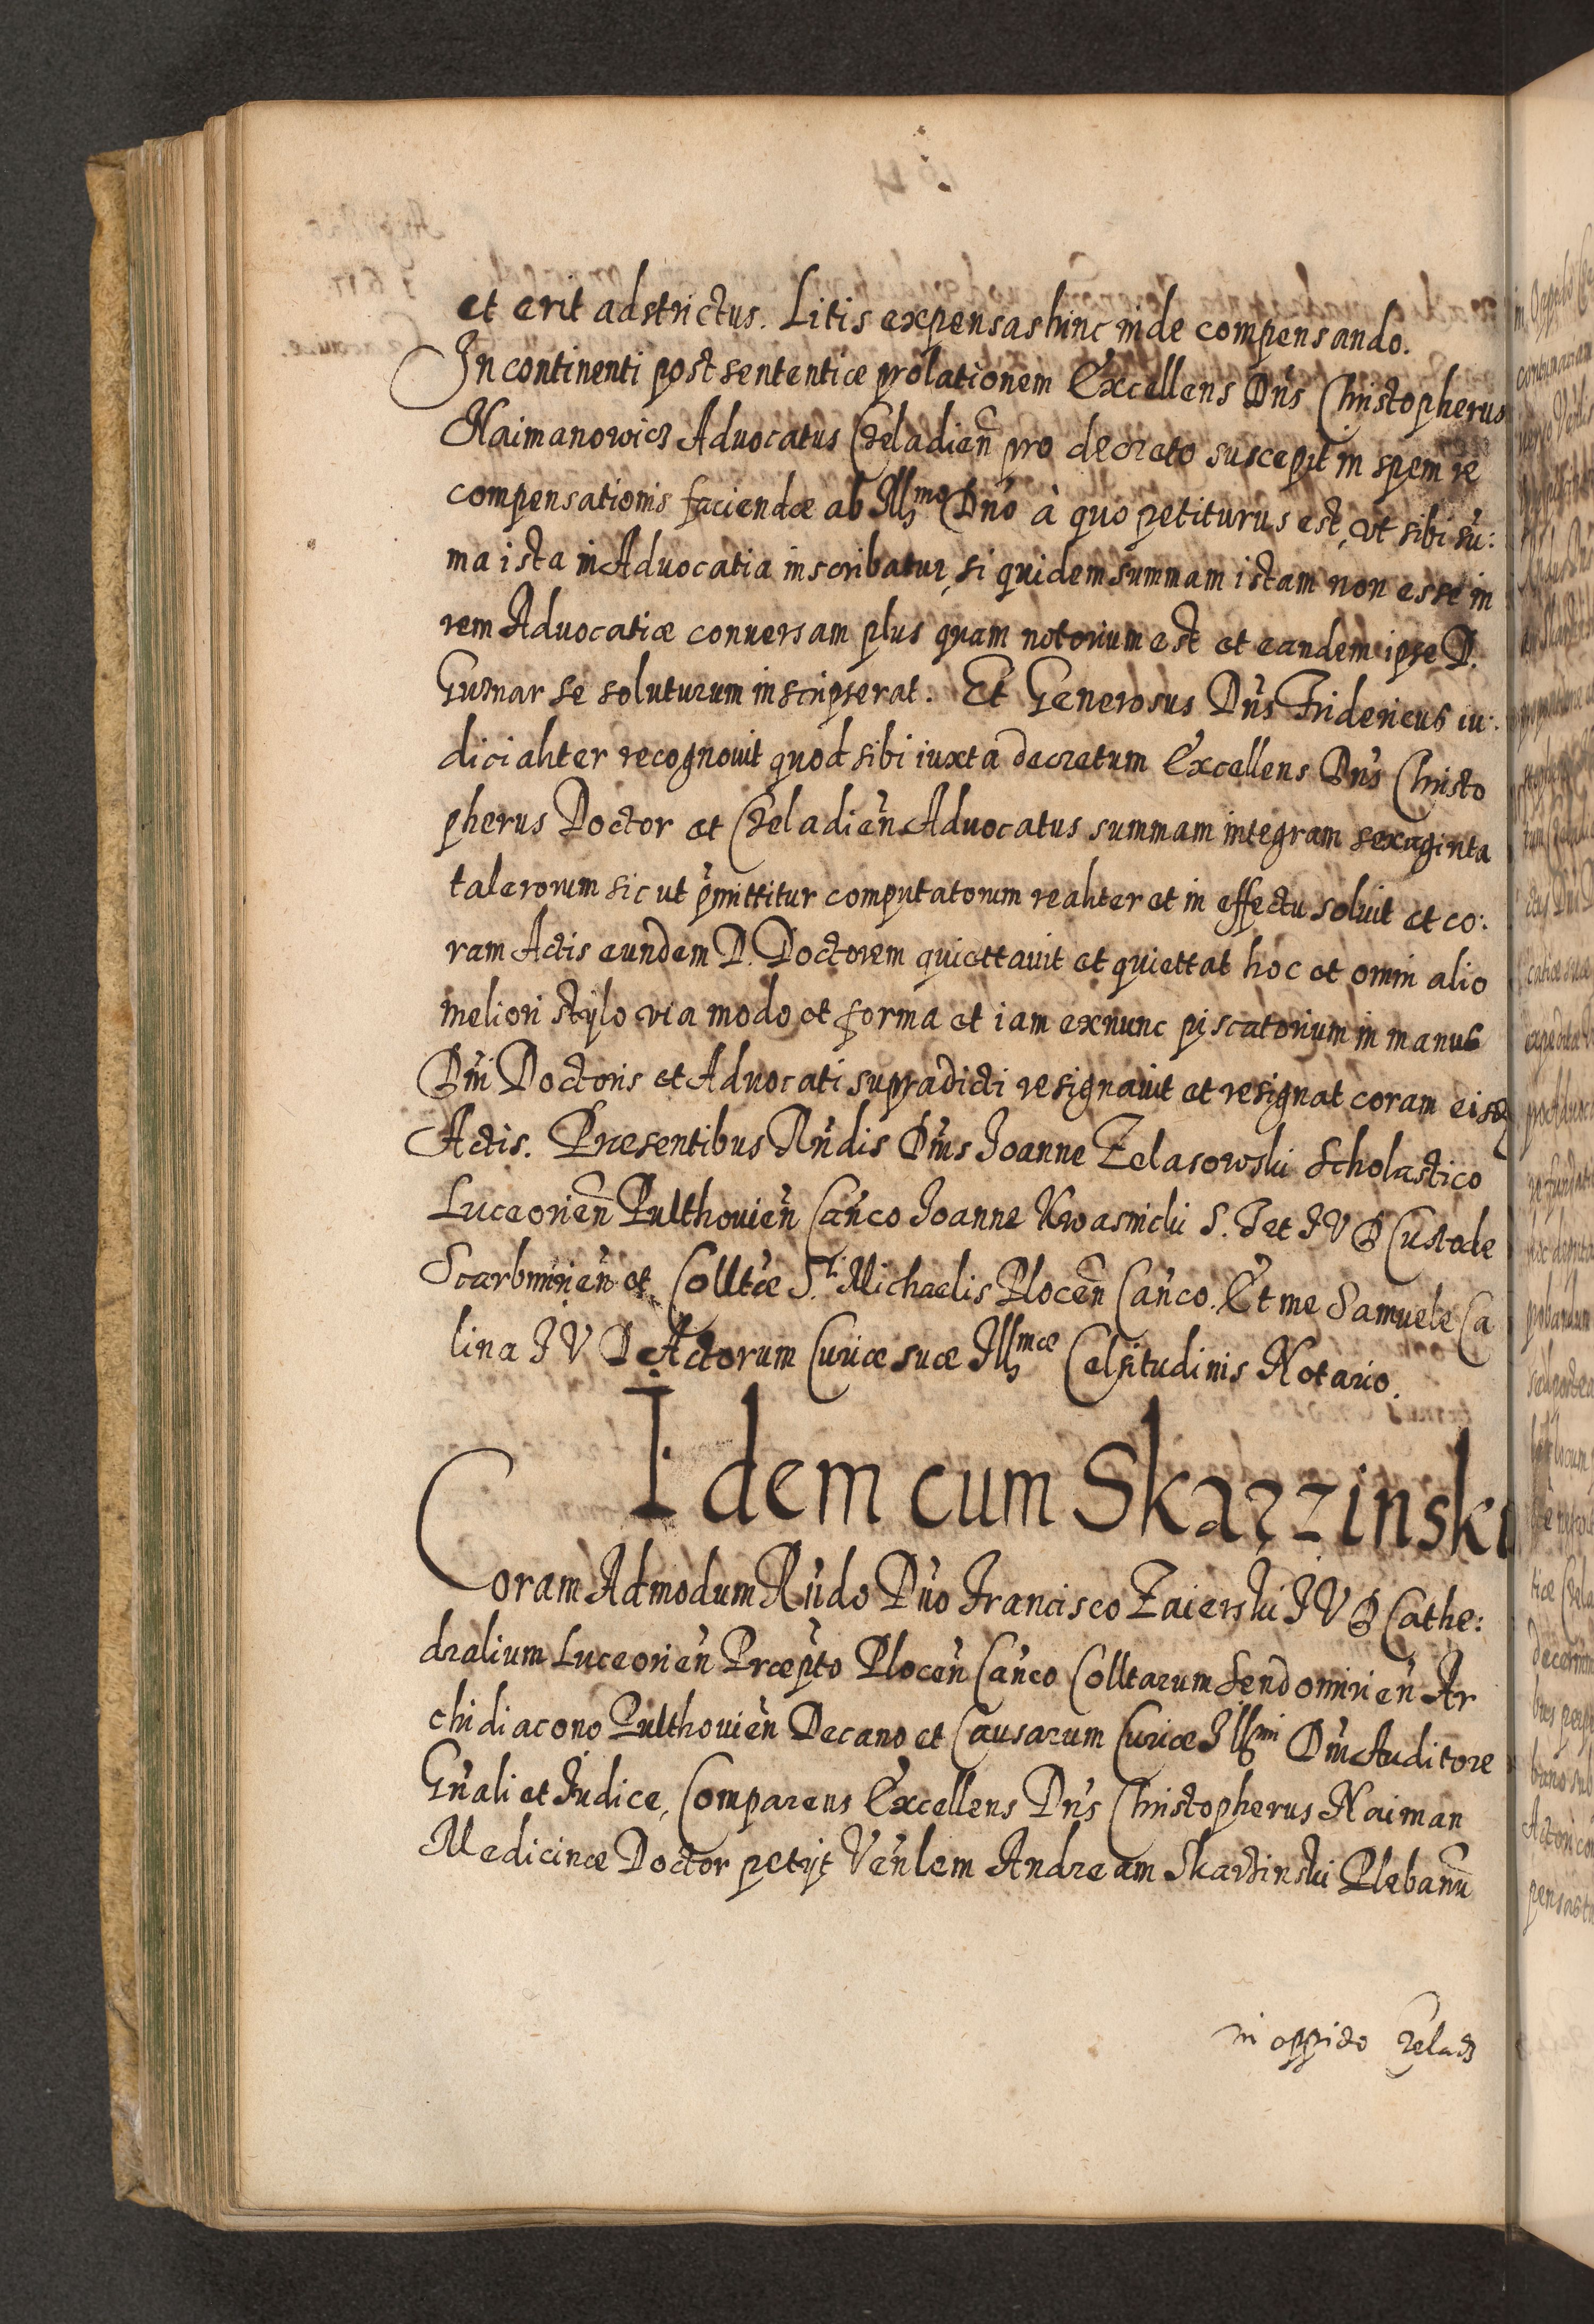 et erit adstrictus. Litis expensas hinc inde compensando.
In continenti post sententiæ prolationem Excellens Dn̄s Christopherus
Naimanowicz Advocatus Czeladien̄ pro decreto suscepit in spem re
compensationis faciendæ ab Illmo Dn̄o à quo petiturus est, vt sibi sū:
ma ista in Advocatia inscribatur, si quidem summam istam non esse in
rem Advocatiæ conversam plus quam notorium est et eandem ipse D.
Gusnar se soluturum inscripserat. Et Generosus Dn̄s Fridericus iu:
dicialiter recognovit quod sibi iuxta decretum Excellens Dn̄s Christo
pherus Doctor et Czeladien̄ Advocatus summam integram sexaginta
talerorum sic ut p̄mittitur computatorum realiter et in effectu solvit et co:
ram Actis eundem D. Doctorem quiettavit et quiettat hoc et omni alio
meliori stylo via modo et forma et iam exnunc piscatorium in manus
Dn̄i Doctoris et Advocati supradicti resignavit et resignat coram eisdē
Actis. Præsentibus Rn̄dis Dn̄is Joanne Zelasowski Scholastico
Luceorien̄ Pulthovien̄ Can̄co Joanne Kwasnicki S. T et J V D Custode
Scarbimirien̄ et Colltæ S.ti Michaelis Plocen̄ Can̄co. Et me Samuele Ca
lina J V D Actorum Curiæ suæ Illmæ Celsitudinis Notario.
Idem cum Skarzinski
Coram Admodum Rn̄do Dn̄o Francisco Zaierski J V D Cathe:
dralium Luceorien̄ Præp̄to Plocen̄ Can̄co Colltarum Sendomirien̄ Ar
chidiacono Pulthovien̄ Decano et Causarum Curiæ Illmi Dn̄i Auditore
Gn̄ali et Judice, Comparens Excellens Dn̄s Christopherus Naiman
Medicinæ Doctor petijt Ven̄lem Andream Skarzinski Plebanū
in oppido Czelad